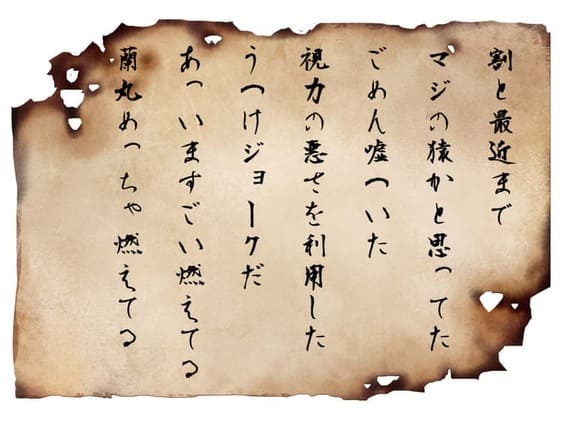 割と最近まで
マジの猿かと思ってた
ごめん嘘ついた
視力の悪さを利用した
うつけジョークだ
あっいますごい燃えてる
蘭丸めっちゃ燃えてる